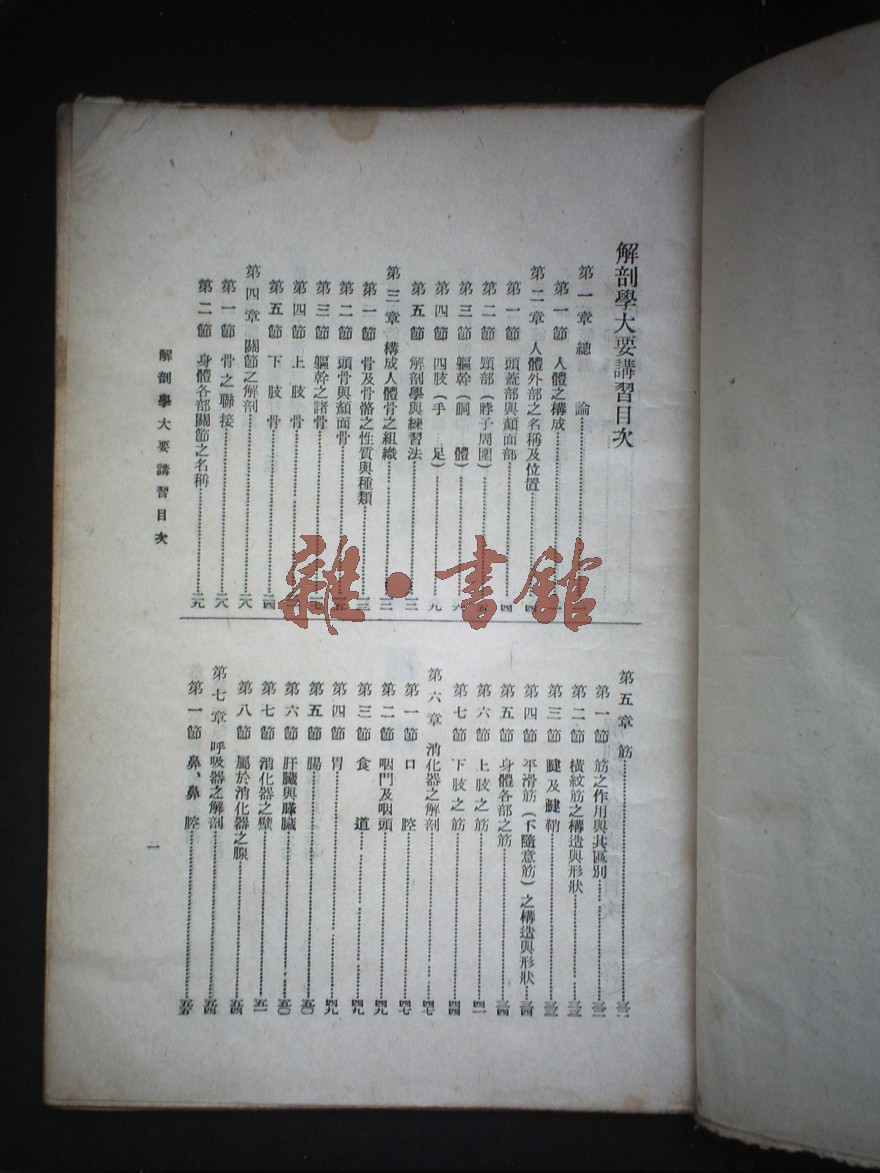 解剖學大要講習目次
第一章 總論
第一節 人體之構成
第二章 人體外部之名稱及位置
第一節 頭蓋部與顏面部 四
第二節 頸部（脖子周圍）
第三節 軀幹（胴體）
第四節 四肢（手足） 九
第五節 解剖學與練習法
第三章 構成人體骨之組織
第一節 骨及骨骼之性質與種類
第二節 頭骨與顏面骨
第三節 軀幹之諸骨
第四節 上肢骨
第五節 下肢骨 二四
第四章 關節之解剖 二八
第一節 骨之聯接 二八
第二節 身體各部關節之名稱 二九
第五章 筋 三二
第一節 筋之作用與其區別 三二
第二節 橫紋筋之構造與形狀 三三
第三節 腱及腱鞘 三三
第四節 平滑筋（不隨意筋）之構造與形狀 三四
第五節 身體各部之筋 三四
第六節 上肢之筋 四一
第七節 下肢之筋 四四
第六章 消化器之解剖 四七
第一節 口腔 四七
第二節 咽門及咽頭 四九
第三節 食道 四九
第四節 胃 四九
第五節 腸 五〇
第六節 肝臟與膵臟 五〇
第七節 消化器之壁 五一
第八節 屬於消化器之腺 五四
第七章 呼吸器之解剖 五四
第一節 鼻、鼻腔 五五
解剖學大要講習目次
一
雜·書館